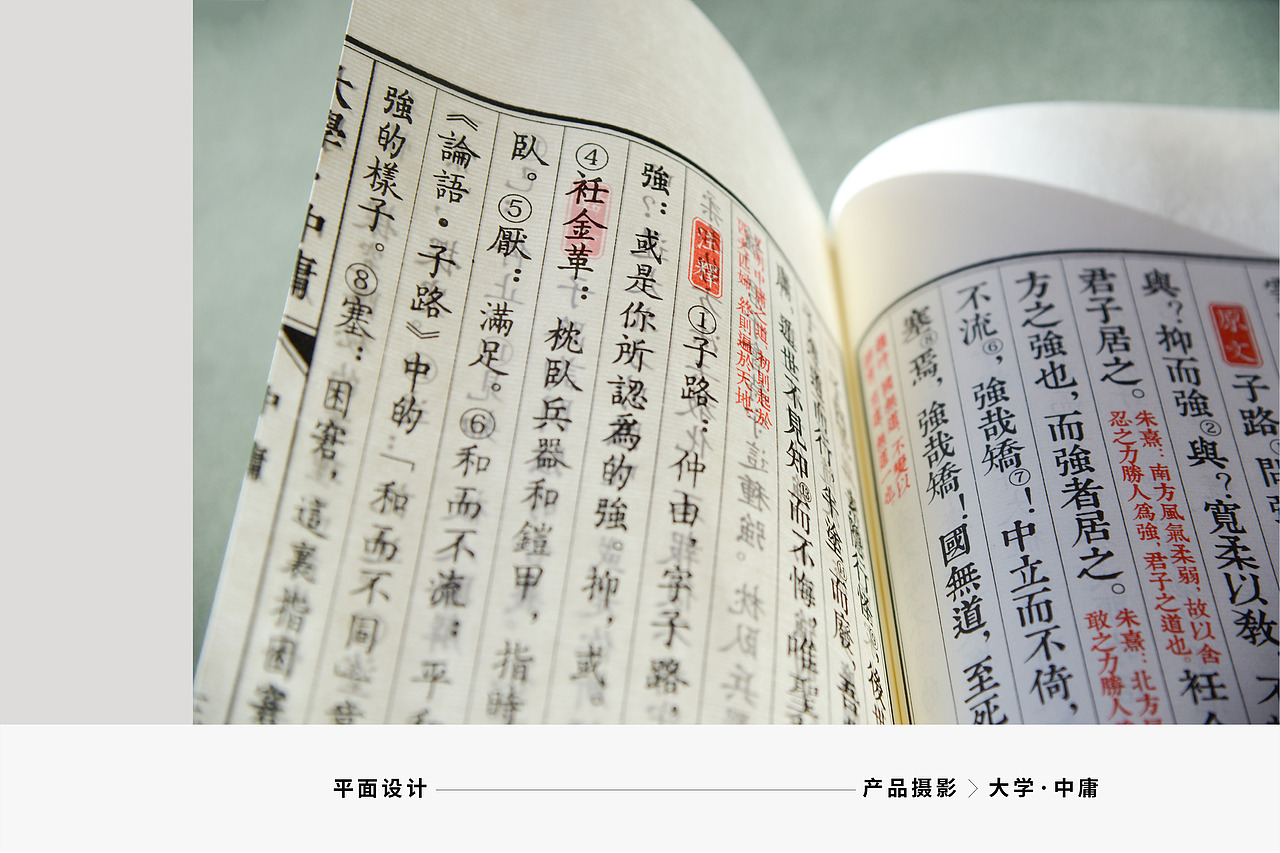 原文 子路①問
與？抑而強②與？寬柔以敎
君子居之。
朱熹：南方風氣柔弱，故以含
忍之力勝人爲強，君子之道也。
衽
方之強也，而強者居之。
朱熹：北方
敢之力勝人
不流⑥，強哉矯⑦！中立而不倚，
塞⑧焉，強哉矯！國無道，至死
遯世不見知⑬而不悔，唯聖
中庸之道，初則起於
終則遍於天地
注釋 ①子路：仲由，字子路，
強：或是你所認為的強。抑，或。
④衽金革：枕臥兵器和鎧甲，指時
臥。⑤厭：滿足。⑥和而不流：平和
《論語·子路》中的「和而不同
強的樣子。⑧塞：困窘，這裏指困窘
大學·中庸
中庸
平面设计
产品摄影 > 大学·中庸